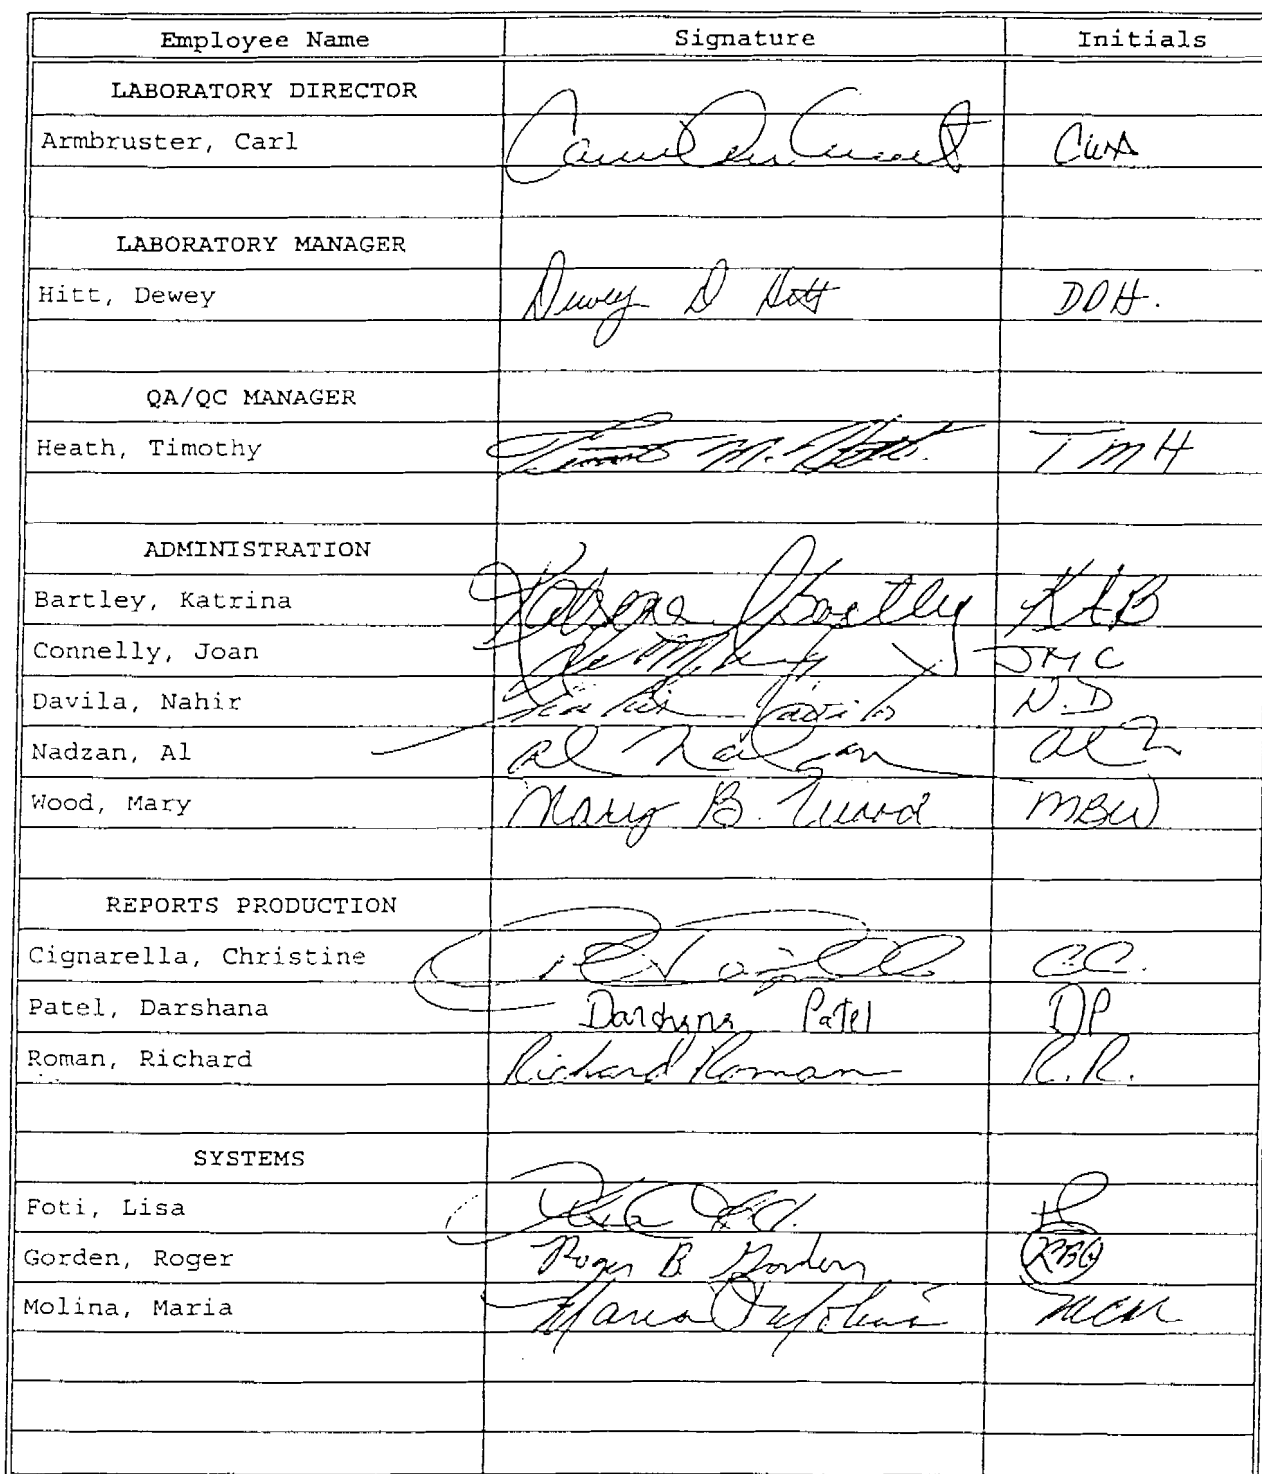 Employee Name Signature Initials
LABORATORY DIRECTOR
Armbruster, Carl CWA
LABORATORY MANAGER
Hitt, Dewey Dewey D Hitt DDH.
QA/QC MANAGER
Heath, Timothy M. TMH
ADMINISTRATION
Bartley, Katrina Katrina Bartley KAB
Connelly, Joan JMC
Davila, Nahir Nahir Davila N.D
Nadzan, Al Al Nadzan
Wood, Mary Mary B. Wood MBW
REPORTS PRODUCTION
Cignarella, Christine C.C.
Patel, Darshana Darshana Patel DP
Roman, Richard Richard Roman R.R.
SYSTEMS
Foti, Lisa
Gorden, Roger Roger B. Gorden RBG
Molina, Maria Maria MCM